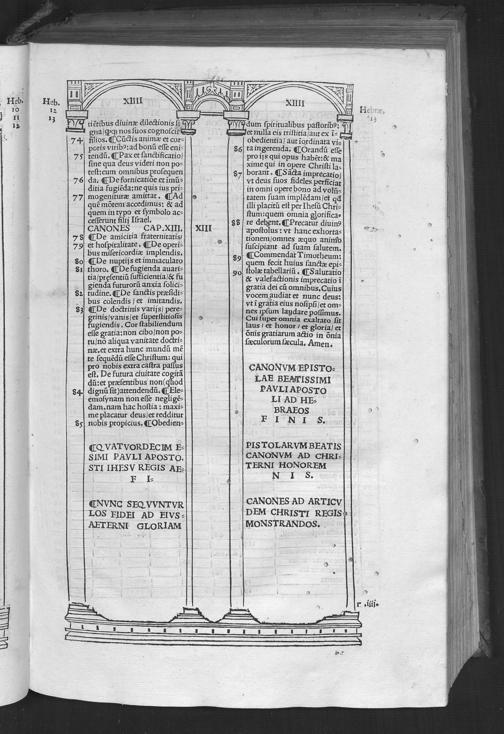 Heb.
10
11
12
Heb.
12
13
XIIII
tiētibus diuinæ dilectionis si
gna/q̄q̄ nos suos cognoscit
74 filios. ¶Cūctis animæ et cor
poris viribꝰ: ad bonū esse eni
75 tendū. ¶Pax et sanctificatio/
sine qua deus videri non po
test: cum omnibus prosequen
76 da. ¶De fornicatiōe et imūs
ditia fugiēda: ne quis ius pri
77 mogenituræ amittat. ¶Ad
quē mōtem accedimus: & ad
quem in typo et symbolo ac
cesserunt filij Israel.
CANONES CAP. XIII.
78 ¶De amicitia fraternitatis
79 et hospitalitate. ¶De operi
bus misericordiæ implendis.
80 ¶De nuptijs et immaculato
81 thoro. ¶De fugienda auari
tia/præsentiū sufficientia, & fu
gienda futurorū anxia solici
82 tudine. ¶De sanctis præsidi
bus colendis/et imitandis.
83 ¶De doctrinis varijs/pere
grinis/vanis/et superstitiosis
fugiendis. Cor stabiliendum
esse gratia: non cibo/non po
tu/no aliqua vanitate doctri
næ. et extra hunc mundū mē
te sequēdū esse Christum: qui
pro nobis extra castra passus
est. De futura ciuitate cogitā
dū: et præsentibus non (quod
84 dignū sit) attendendū. ¶Ele
emosynam non esse negligē
dam. nam hac hostia: maxi
me placatur deus/et redditur
85 nobis propicius. ¶Obedien
¶QVATVORDECIM E
SIMI PAVLI APOSTO
STI IHESV REGIS AE
F I
¶NVNC SEQVVNTVR
LOS FIDEI AD EIVS
AETERNI GLORIAM
XIII
XIIII
Hebræ.
13
dum spiritualibus pastoribꝰ:
et nulla eis tristitia/aut ex i
obedientia/aut iordinata vi
86 ta ingerenda. ¶Orandū esse
pro ijs qui opus habēt: & ma
xime qui in opere Christi la
87 borant. ¶Sācta imprecatio/
vt deus suos fideles perficiat
in omni opere bono ad volū
tatem suam implēdam/et qd
illi placitū est per Ihesū Chri
stum: quem omnia glorifica
88 re debent. ¶Precatur diuinꝰ
apostolus: vt hanc exhorta
tionem/omnes æquo animo
suscipiant ad suam salutem.
89 ¶Commendat Timotheum:
quem fecit huius sanctæ epi
90 stolæ tabellariū. ¶Salutatio
& valefactionis imprecatio i
gratia dei cū omnibus. Cuius
vocem audiat et nunc deus:
vt i gratia eius nos ipsi/et om
nes ipsum laudare possimus.
Cui super omnia exaltato sit
laus/et honor/et gloria/et
ōnis gratiarum actio in ōnia
sæculorum sæcula. Amen.
CANONVM EPISTO
LAE BEATISSIMI
PAVLI APOSTO
LI AD HE
BRAEOS
F I N I S.
PISTOLARVM BEATIS
CANONVM AD CHRI
TERNI HONOREM
N I S.
CANONES AD ARTICV
DEM CHRISTI REGIS
MONSTRANDOS.
r .iiii.